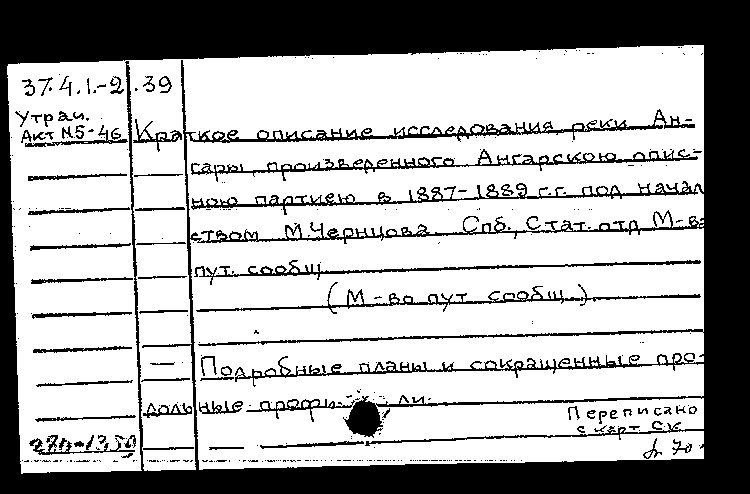 37.4.1.-2.39
Утрач.
Акт №5-46
Краткое описание исследования реки Ан-
гары, произведенного Ангарскою опис-
ною партиею в 1887-1889 г.г. под начал
ством М.Чернцова. Спб., Стат. отд М-ва
пут. сообщ.
(М-во пут. сообщ.)
— Подробные планы и сокращенные про-
дольные профили.
Переписано
с карт СК
70